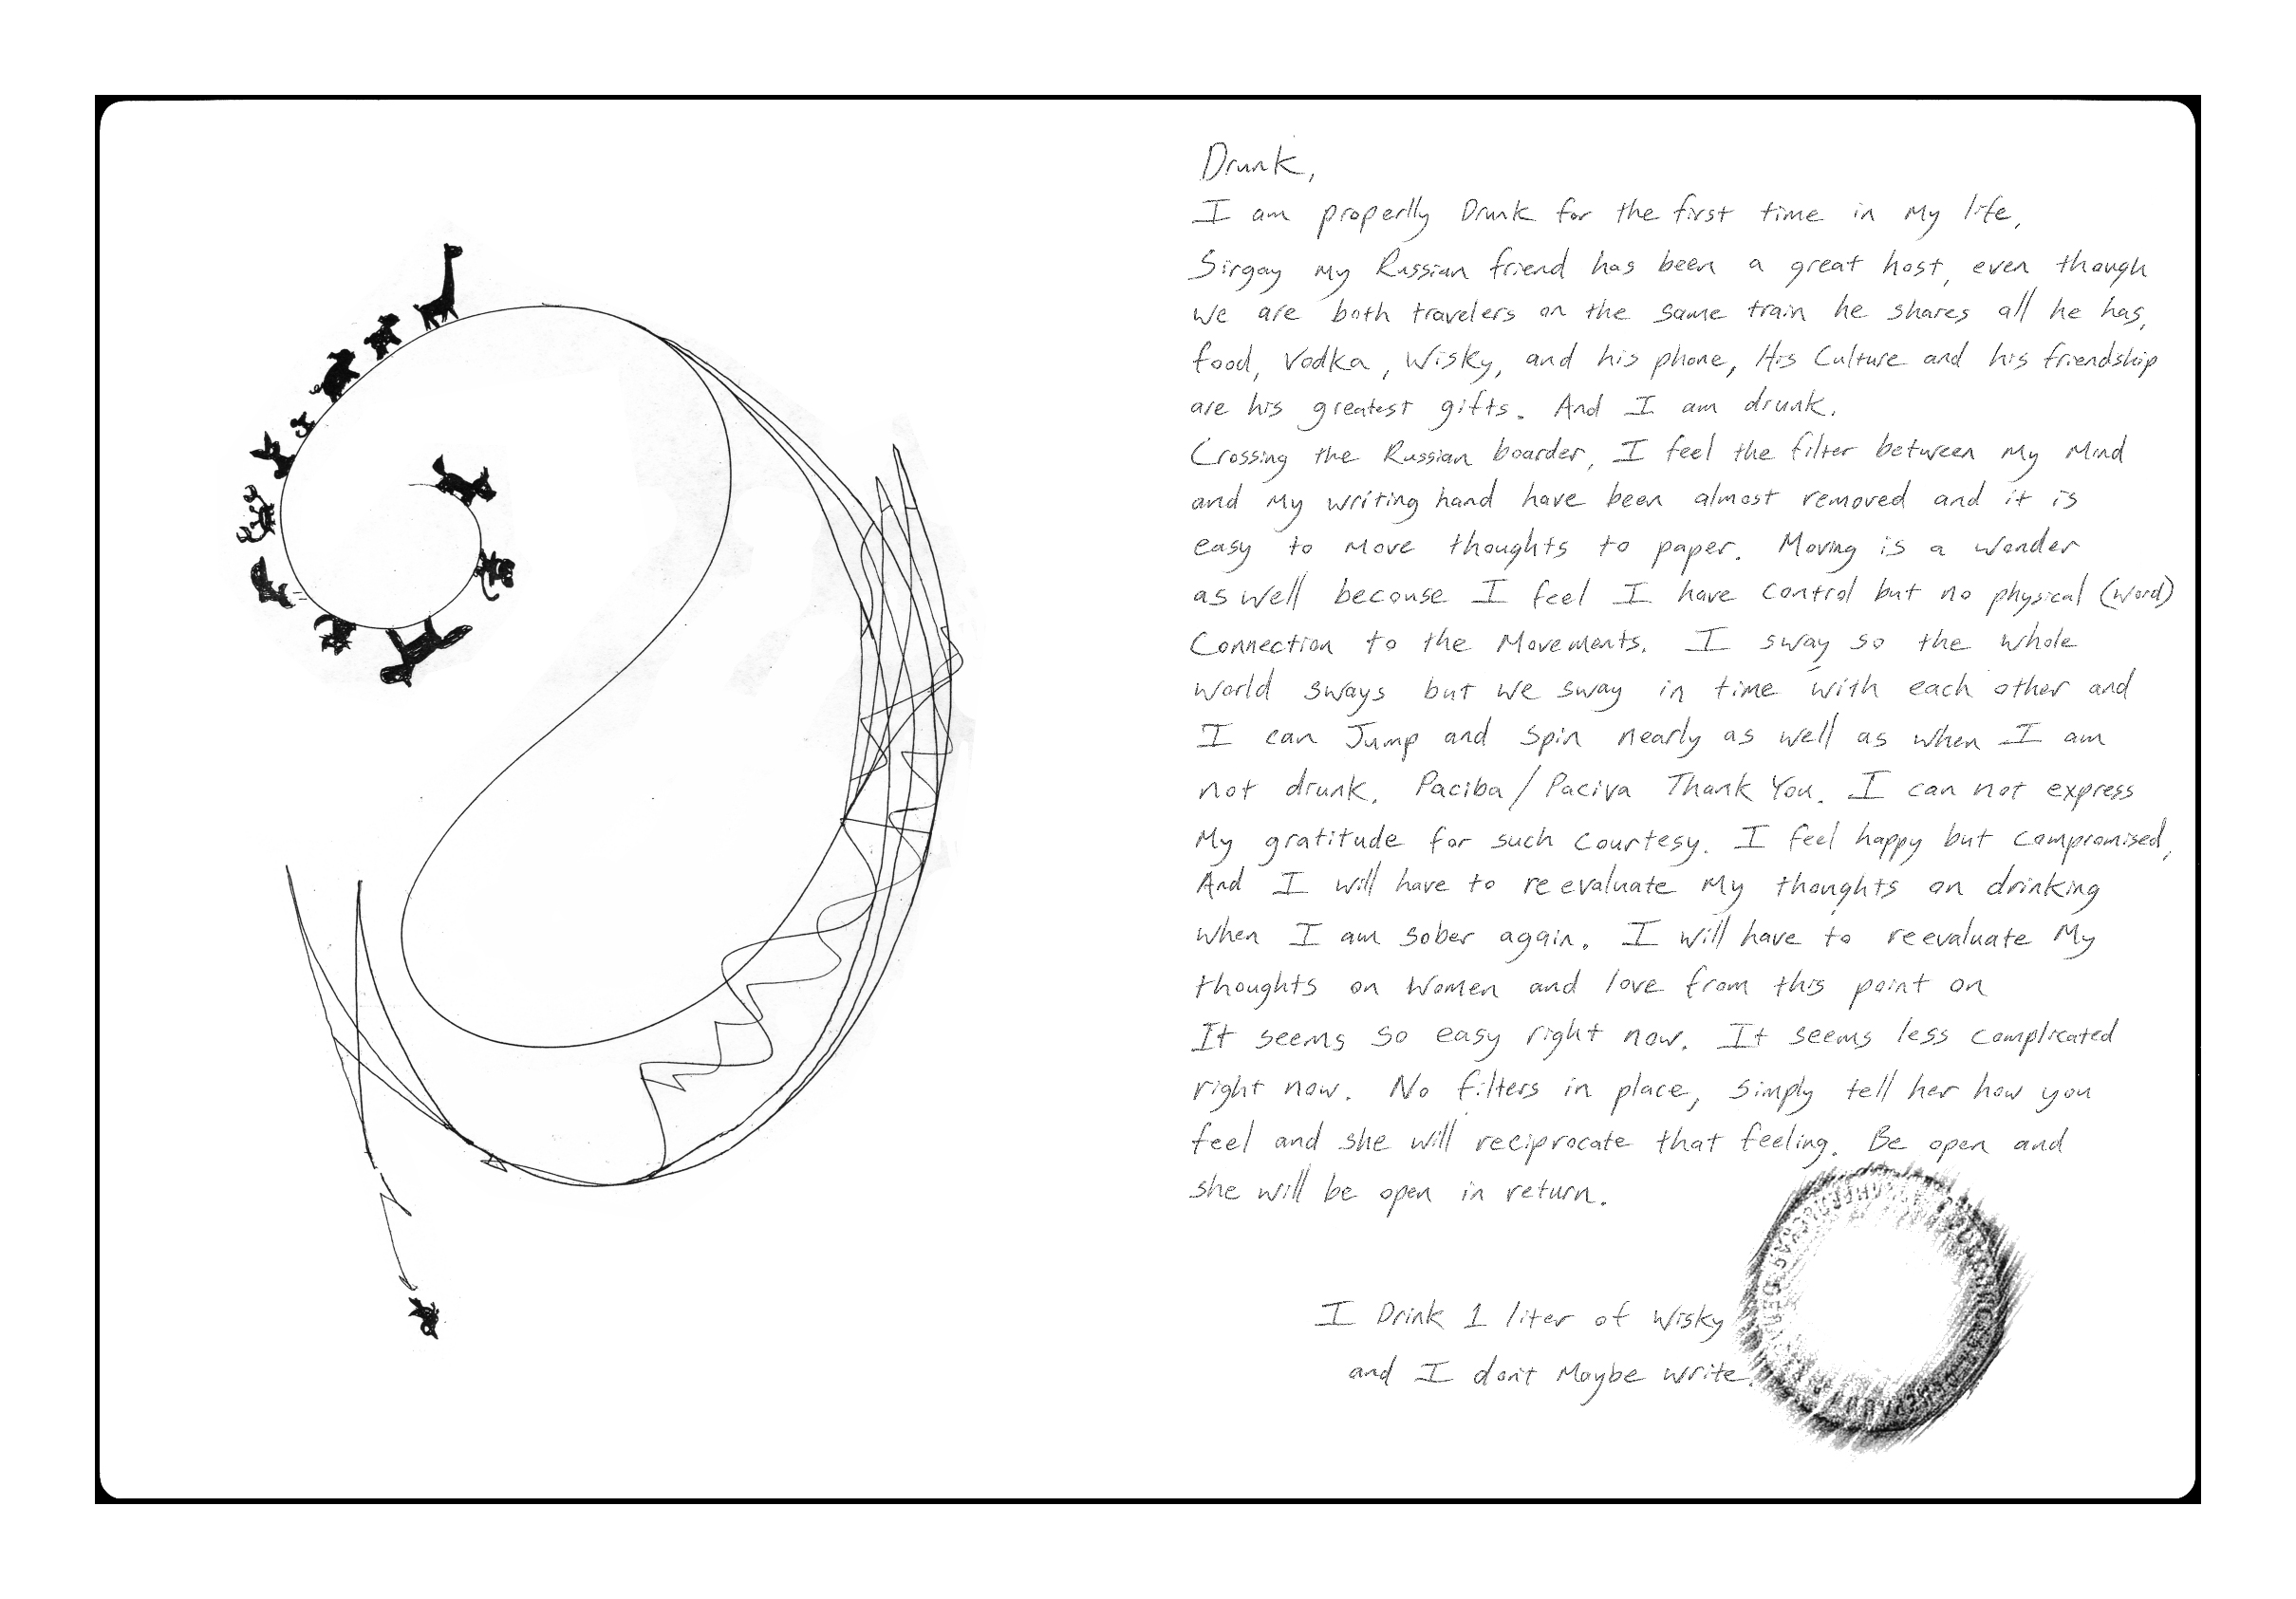 Drunk,
I am properlly Drunk for the first time in my life,
Sirgay my Russian friend has been a great host, even though
we are both travelers on the same train he shares all he has,
food, Vodka, Wisky, and his phone, His Culture and his friendship
are his greatest gifts. And I am drunk.
Crossing the Russian boarder, I feel the filter between my Mind
and my writing hand have been almost removed and it is
easy to move thoughts to paper. Moving is a wonder
as well becouse I feel I have control but no physical (word)
Connection to the Movements. I sway so the whole
world sways but we sway in time with each other and
I can Jump and Spin nearly as well as when I am
not drunk. Paciba / Paciva Thank You. I can not express
My gratitude for such courtesy. I feel happy but compromised,
And I will have to reevaluate my thoughts on drinking
when I am sober again. I will have to reevaluate My
thoughts on Women and love from this point on
It seems so easy right now. It seems less complicated
right now. No filters in place, simply tell her how you
feel and she will reciprocate that feeling. Be open and
she will be open in return.
I Drink 1 liter of Wisky
and I don't Maybe write.